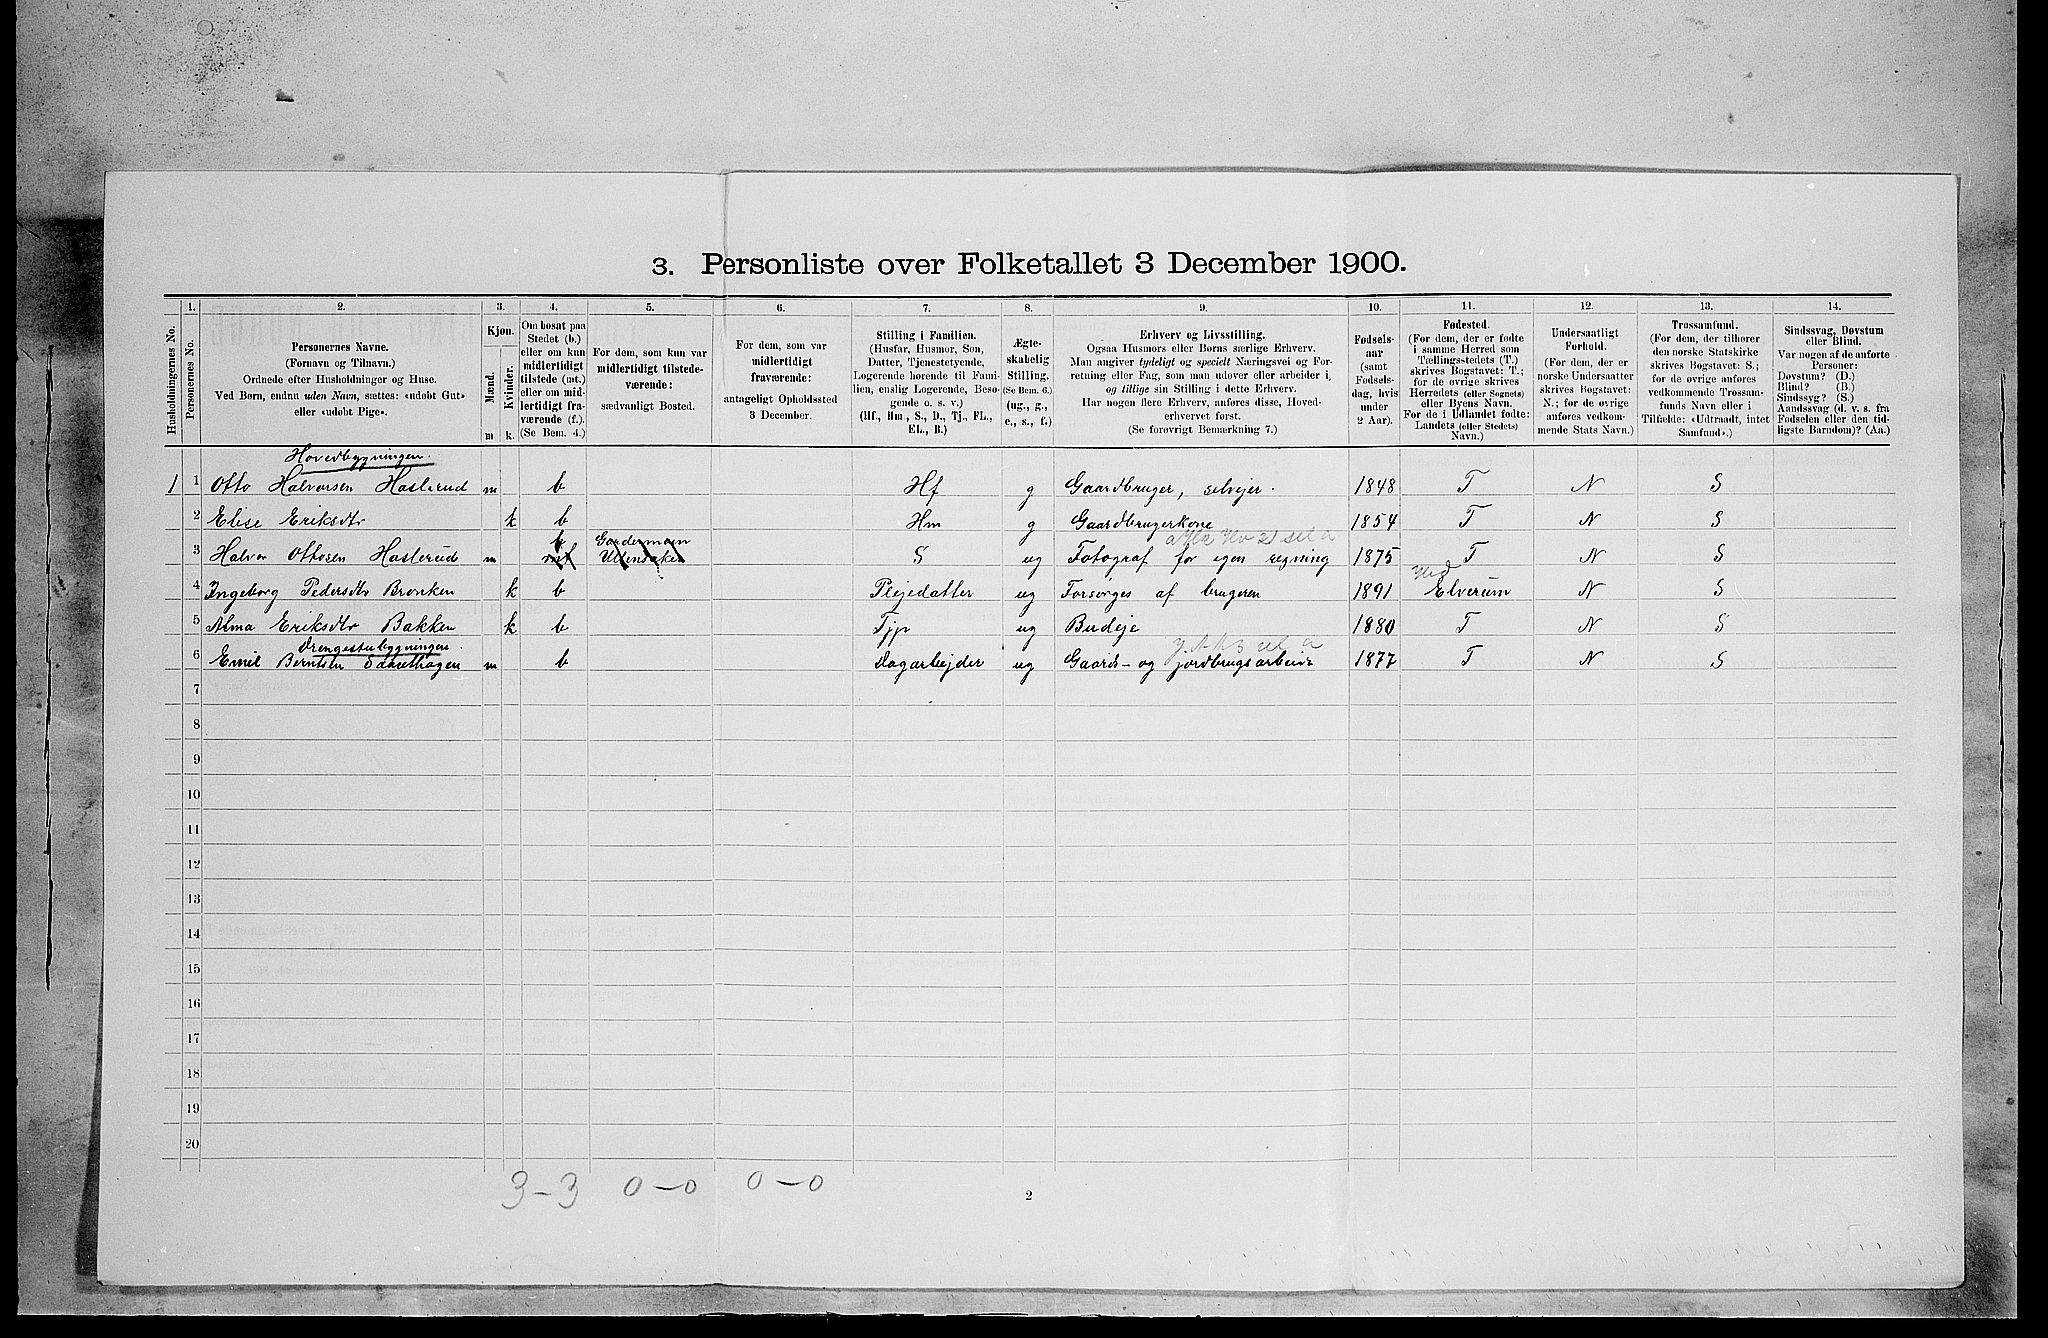 3. Personliste over Folketallet 3 December 1900.
Husholdningernes No.
1.
Personernes No.
2.
Personernes Navne.
(Fornavn og Tilnavn.)
Ordnede efter Husholdninger og Huse.
Ved Børn, endnu uden Navn, sættes: «udøbt Gut»
eller «udøbt Pige».
3.
Kjøn.
Mænd.
Kvinder.
m k.
4.
Om bosat paa
Stedet (b.)
eller om kun
midlertidigt
tilstede (mt.)
eller om mid-
lertidigt fra-
værende (f.).
(Se Bem. 4.)
5.
For dem, som kun var
midlertidigt tilstede-
værende:
sædvanligt Bosted.
6.
For dem, som var
midlertidigt
fraværende:
antageligt Opholdssted
3 December.
7.
Stilling i Familien.
(Husfar, Husmor, Søn,
Datter, Tjenestetyende,
Logerende hørende til Fami-
lien, enslig Logerende, Besø-
gende o. s. v.)
(Hf., Hm., S., D., Tj., FL.,
EL., B.)
8.
Ægte-
skabelig
Stilling.
(Se Bem. 6.)
(ug., g.,
e., s., f.)
9.
Erhverv og Livsstilling.
Ogsaa Husmors eller Børns særlige Erhverv.
Man angiver tydeligt og specielt Næringsvei og For-
retning eller Fag, som man udøver eller arbeider i,
og tillige sin Stilling i dette Erhverv.
Har nogen flere Erhverv, anføres disse, Hoved-
erhvervet først.
(Se forøvrigt Bemærkning 7.)
10.
Fødsels-
aar
(samt
Fødsels-
dag, hvis
under
2 Aar).
11.
Fødested.
(For dem, der er fødte
i samme Herred som
Tællingsstedets (T.)
skrives Bogstavet: T.;
for de øvrige skrives
Herredets (eller Sognets)
eller Byens Navn.
For de i Udlandet fødte:
Landets (eller Stedets)
Navn.)
12.
Undersaatligt
Forhold.
(For dem, der er
norske Undersaatter
skrives Bogstavet:
N.; for de øvrige
anføres vedkom-
mende Stats Navn.)
13.
Trossamfund.
(For dem, der tilhører
den norske Statskirke
skrives Bogstavet: S.;
for de øvrige anføres
vedkommende Trossam-
funds Navn eller i
Tilfælde: «Udtraadt, intet
Samfund».)
14.
Sindssvag, Døvstum
eller Blind.
Var nogen af de anførte
Personer:
Døvstum? (D.)
Blind? (B.)
Sindssyg? (S.)
Aandssvag (d. v. s. fra
Fødselen eller den tid-
ligste Barndom)? (Aa.)
Hovedbygningen.
1 1 Otto Halvorsen Haslerud m b Hf g Gaardbruger, selvejer. 1848 T N S
2 Elise Eriksdtr k b Hm g Gaardbrugerkone 1854 T N S
b Gardermoen
3 Halvor Ottosen Haslerud m mt Ullensaker S ug Fotograf for egen regning 1875 T N S
Hed
4 Ingeborg Pedersdtr Bronken k b Plejedatter ug Forsørges af brugeren 1891 Elverum N S
5 Alma Eriksdtr Bakken k b Tjp ug Budeje 1880 T N S
Drengestubygningen.
6 Emil Berntsen m b Dagarbejder ug Gaards- og jordbrugsarbeide 1877 T N S
7
8
9
10
11
12
13
14
15
16
17
18
19
20
3-3 0-0 0-0
2